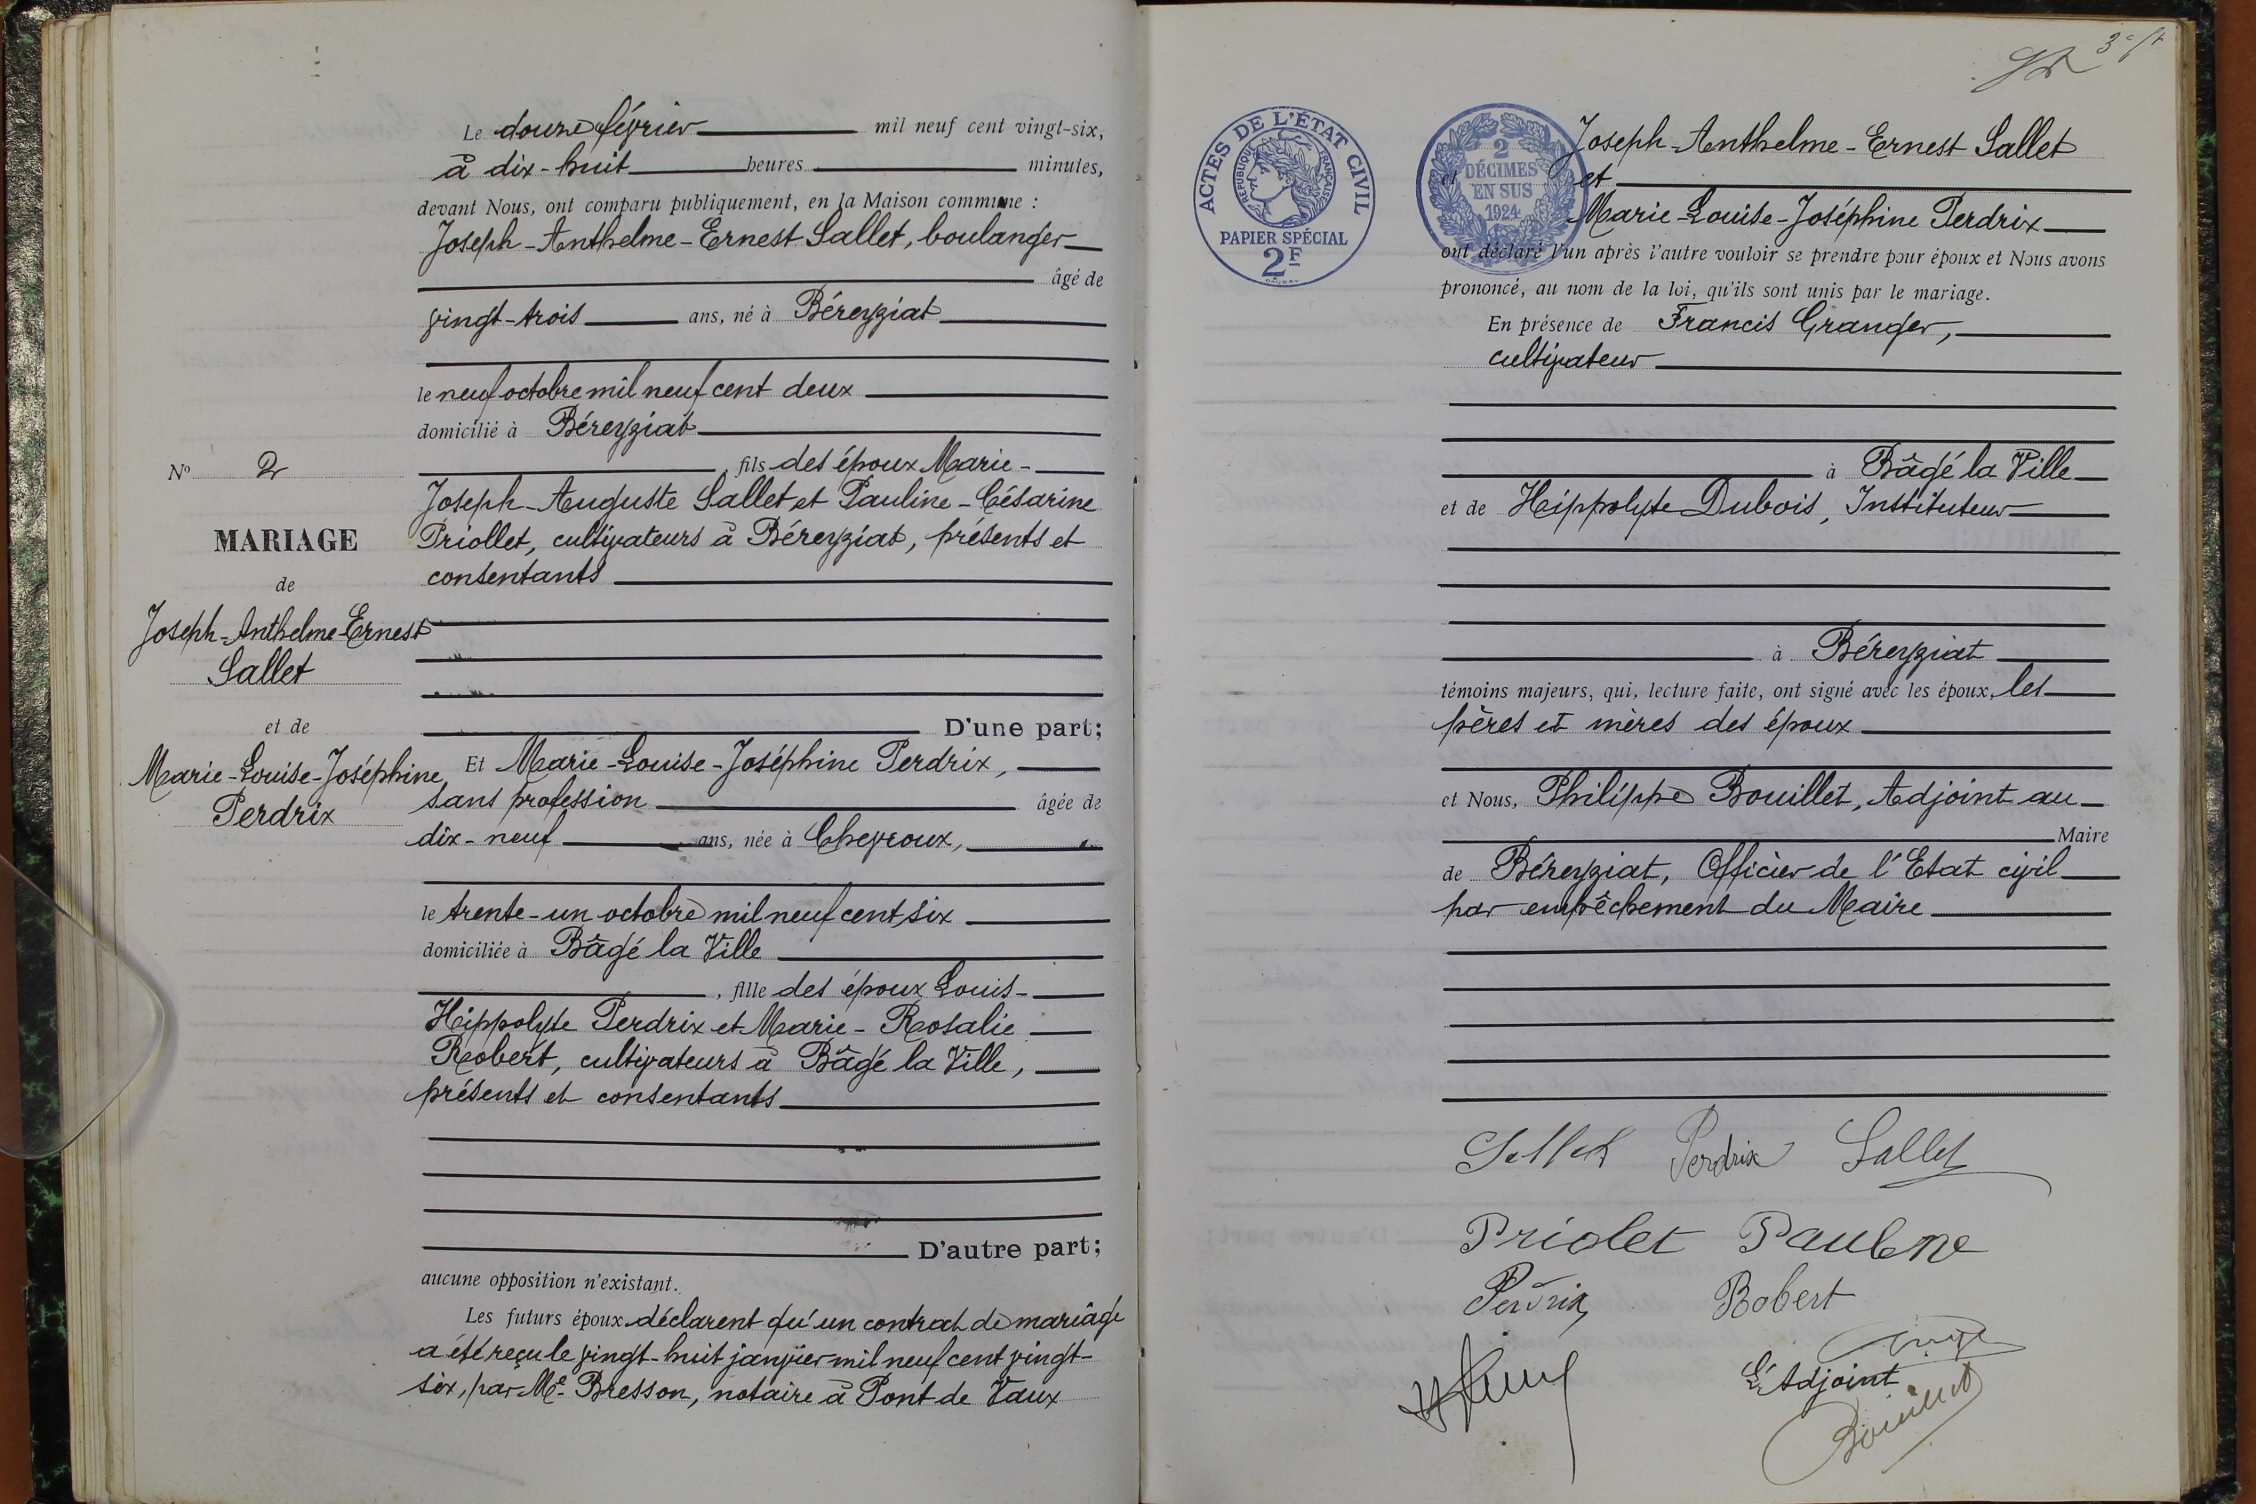 Le douze février mil neuf cent vingt-six,
à dix-huit heures minutes,
devant Nous, ont comparu publiquement, en la Maison commune :
Joseph-Anthelme-Ernest Sallet, boulanger
âgé de
vingt-trois ans, né à Béreyziat
le neuf octobre mil neuf cent deux
domicilié à Béreyziat
, fils des époux Marie-
Joseph-Auguste Sallet et Pauline-Césarine
Priollet, cultivateurs à Béreyziat, présents et
consentants
D'une part;
Et Marie-Louise-Joséphine Perdrix,
sans profession âgée de
dix-neuf ans, née à Chevroux,
le trente-un octobre mil neuf cent six
domiciliée à Bâgé la Ville
, fille des époux Louis-
Hippolyte Perdrix et Marie-Rosalie
Robert, cultivateurs à Bâgé la Ville,
présents et consentants
D'autre part;
aucune opposition n'existant.
Les futurs époux déclarent qu'un contrat de mariâge
a été reçu le vingt-huit janvier mil neuf cent vingt-
six, par Me Bresson, notaire à Pont de Vaux
No 2
MARIAGE
de
Joseph-Anthelme-Ernest
Sallet
et de
Marie-Louise-Joséphine
Perdrix
ACTES DE L'ÉTAT CIVIL
RÉPUBLIQUE FRANÇAISE
PAPIER SPÉCIAL
2F
2
DÉCIMES
EN SUS
1924
Joseph-Anthelme-Ernest Sallet
et et
Marie-Louise-Joséphine Perdrix
ont déclaré l'un après l'autre vouloir se prendre pour époux et Nous avons
prononcé, au nom de la loi, qu'ils sont unis par le mariage.
En présence de Francis Granger,
cultivateur
à Bâgé la Ville
et de Hippolyte Dubois, Instituteur
à Béreyziat
témoins majeurs, qui, lecture faite, ont signé avec les époux, les
pères et mères des époux
et Nous, Philippe Bouillet, Adjoint au
Maire
de Béreyziat, Officier de l'Etat civil
par empêchement du Maire
Sallet Perdrix Sallet
Priolet Pauline
Perdrix Robert
L'Adjoint
Bouillet